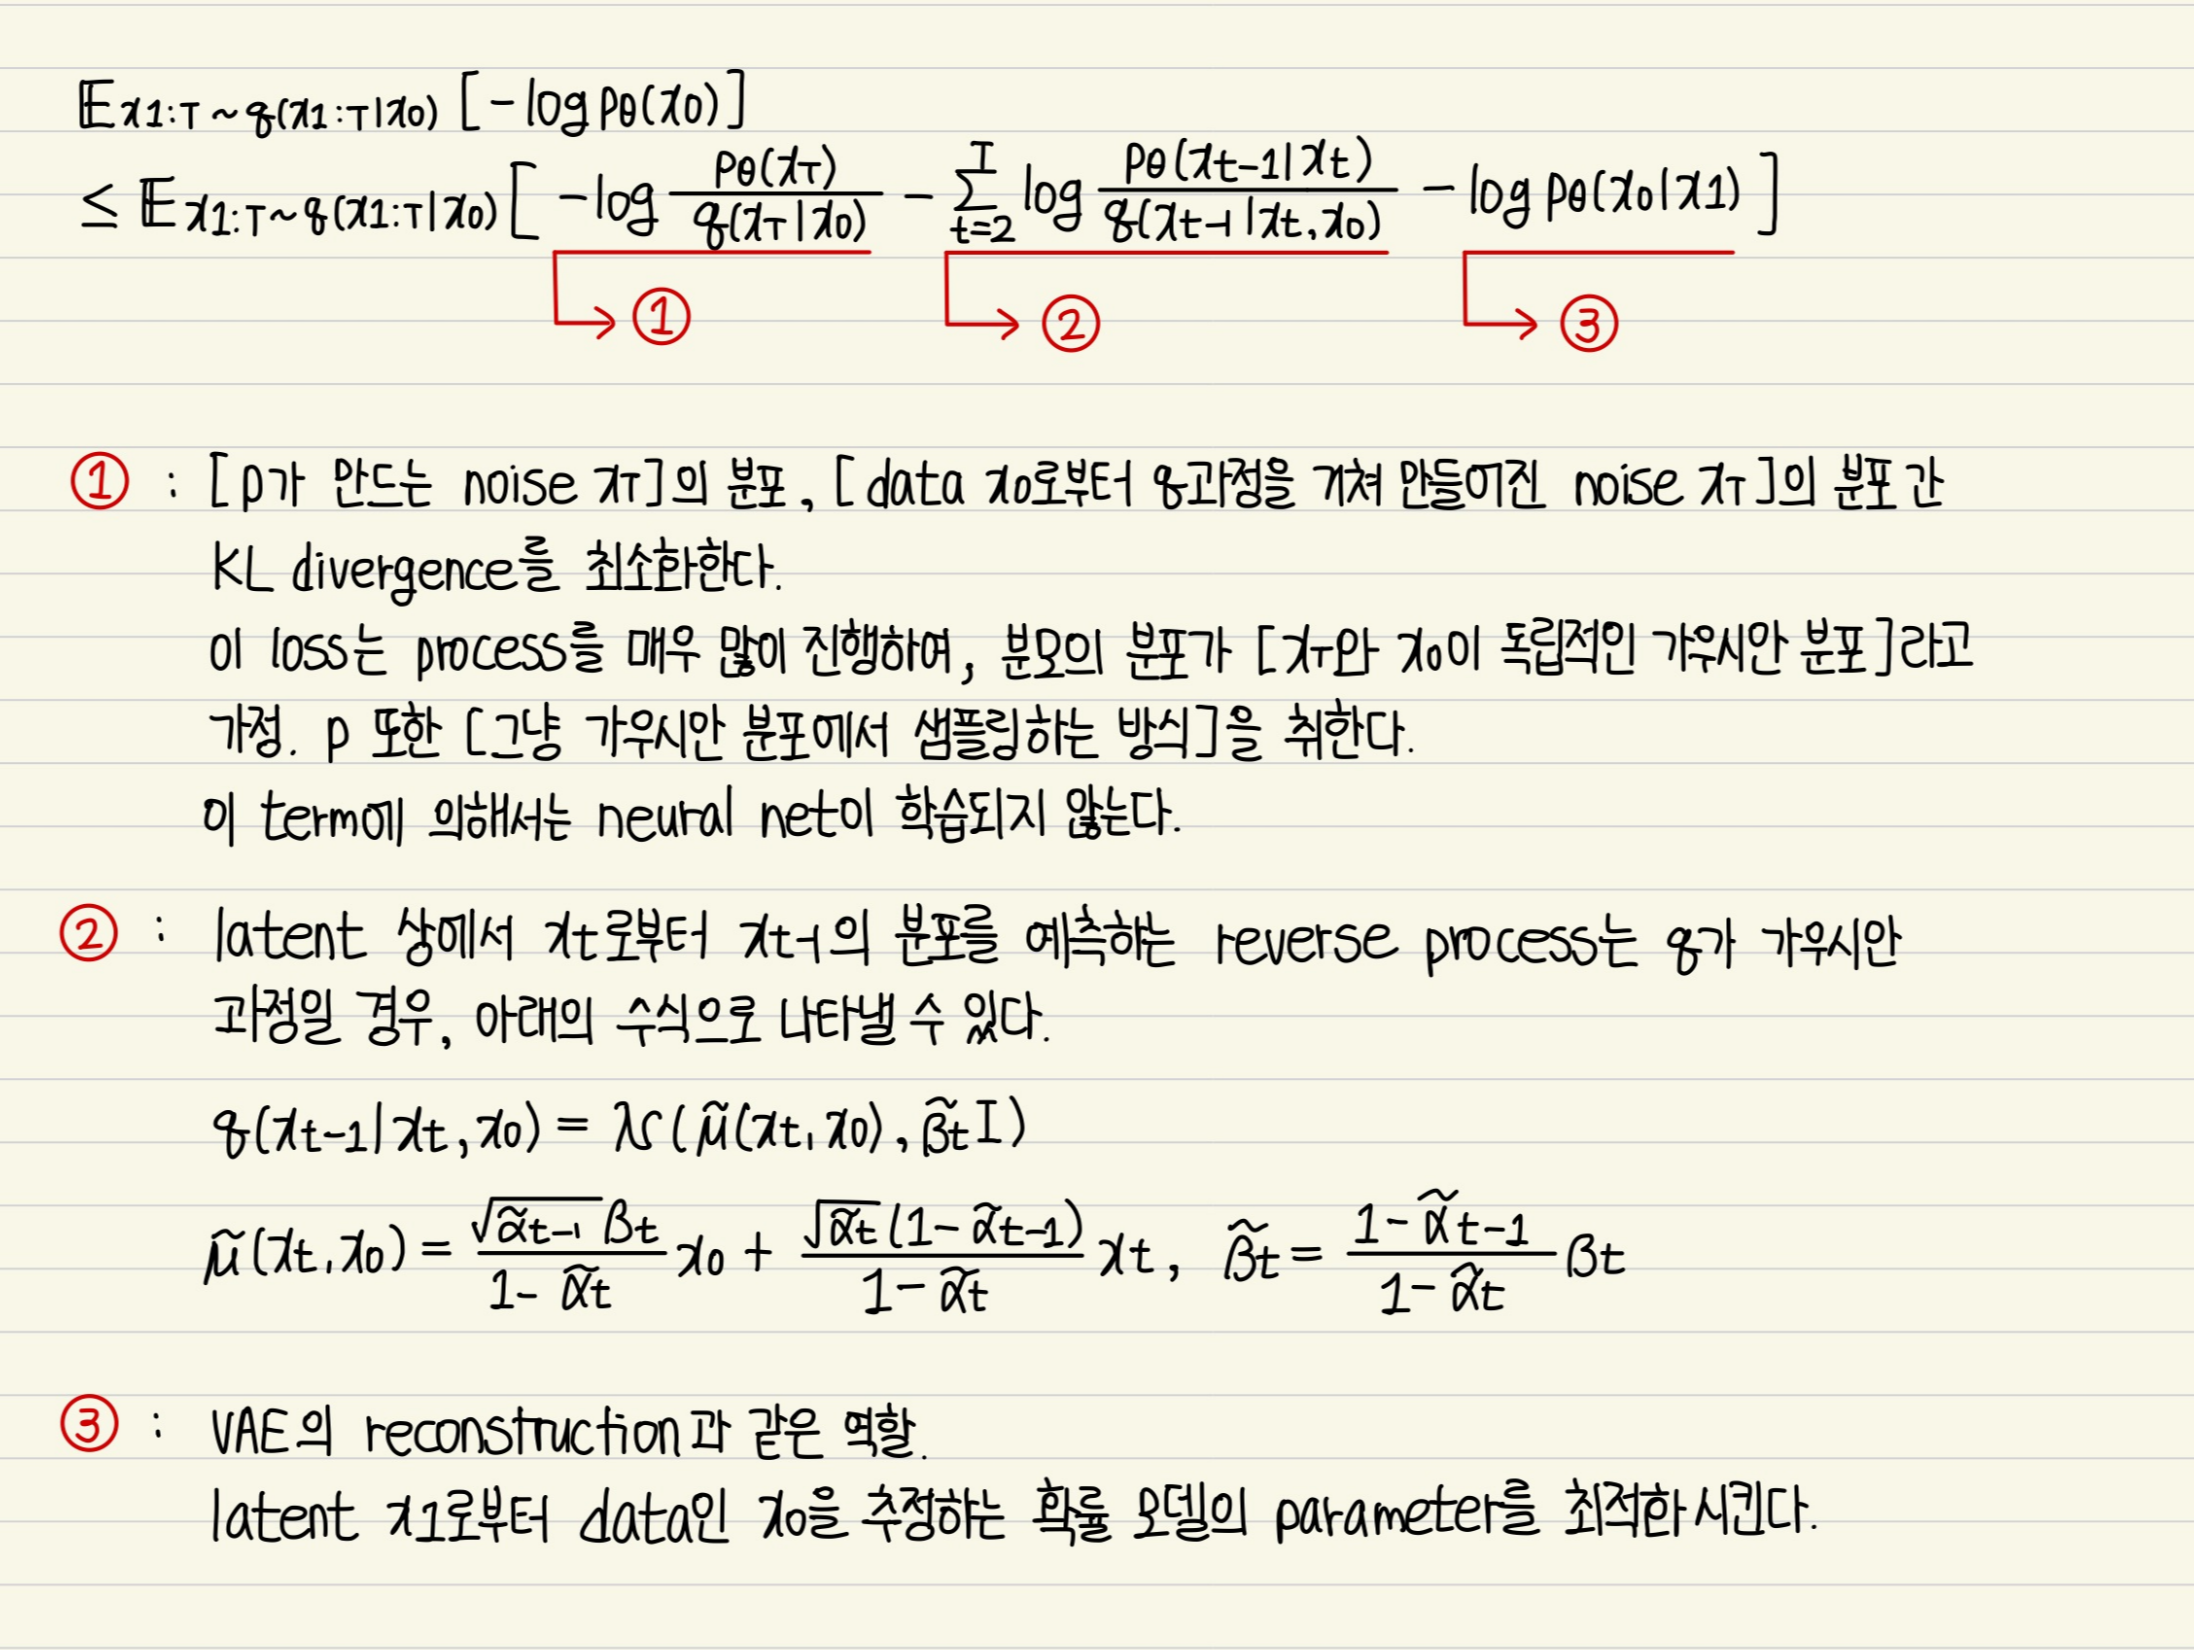 𝔼x1:T~q(x1:T|x0) [-log pθ(x0)]
≤ 𝔼x1:T~q(x1:T|x0) [ -log pθ(xT)/q(xT|x0) - Σ_{t=2}^{T} log pθ(xt-1|xt)/q(xt-1|xt,x0) - log pθ(x0|x1) ]
→ ① → ② → ③
① : [p가 만드는 noise xT]의 분포, [data x0로부터 q과정을 거쳐 만들어진 noise xT]의 분포 간
KL divergence를 최소화한다.
이 loss는 process를 매우 많이 진행하여, 분모의 분포가 [xT와 x0이 독립적인 가우시안 분포]라고
가정. p 또한 [그냥 가우시안 분포에서 샘플링하는 방식]을 취한다.
이 term에 의해서는 neural net이 학습되지 않는다.
② : latent 상에서 xt로부터 xt-1의 분포를 예측하는 reverse process는 q가 가우시안
과정일 경우, 아래의 수식으로 나타낼 수 있다.
q(xt-1|xt,x0) = N(μ̃(xt,x0), β̃tI)
μ̃(xt,x0) = √α̃t-1 βt/(1-α̃t) x0 + √α̃t(1-α̃t-1)/(1-α̃t) xt, β̃t = (1-α̃t-1)/(1-α̃t) βt
③ : VAE의 reconstruction과 같은 역할.
latent x1로부터 data인 x0을 추정하는 확률 모델의 parameter를 최적화시킨다.